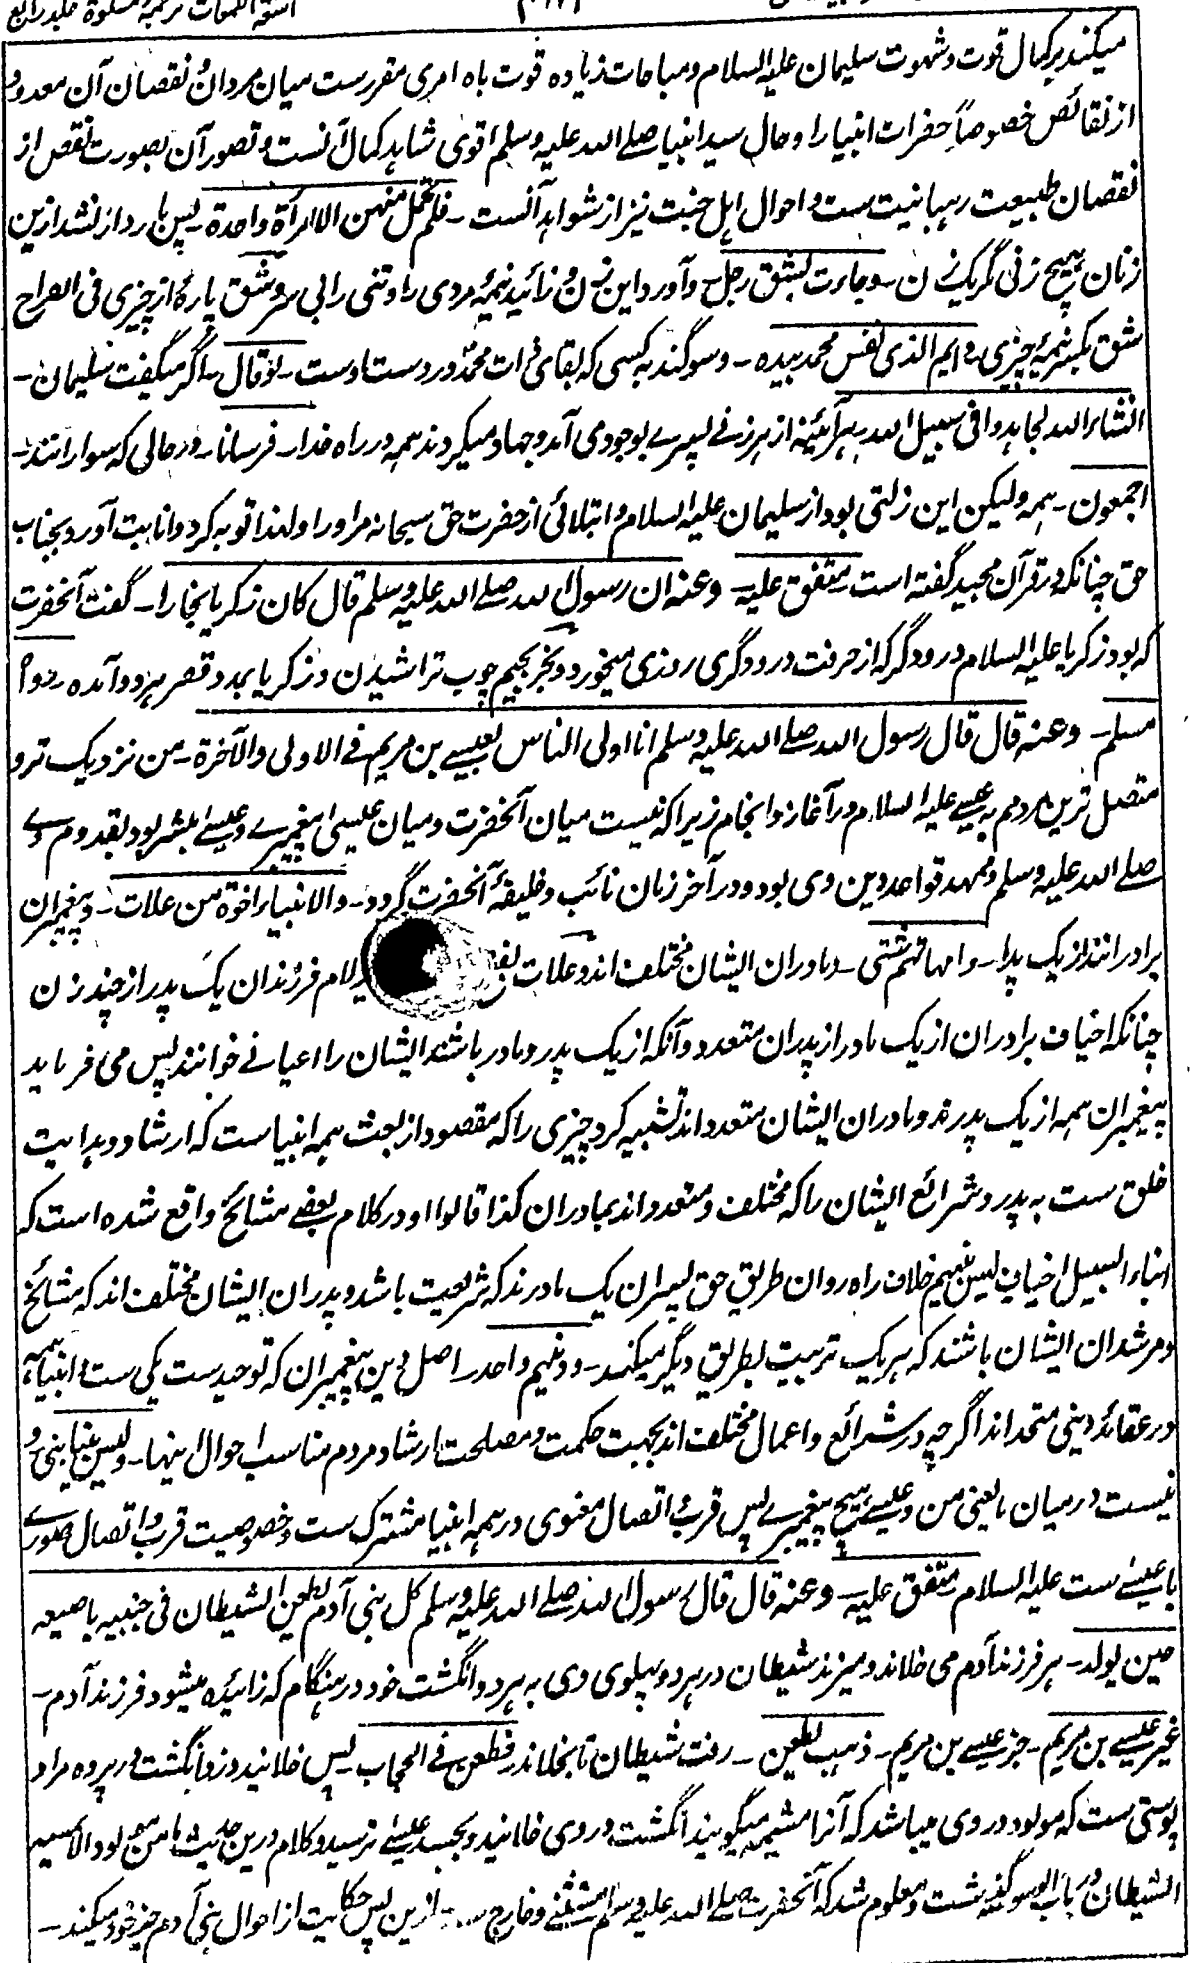 اشعة اللمعات ترجمہ مشکوة جلد رابع
میکند بر کمال قوت و شہوت سلیمان علیہ السلام و مباحات زیادہ قوت باہ امری مقررست میان مردان و نقصان آن معدود
از نقائص خصوصاً حضرات انبیا را و حال سید انبیا صلے اللہ علیہ وسلم اقوی شاہد کمال آنست و تصور آن بصورت نقص از
نقصان طبیعت رہبانیت ست و احوال اہل جنت نیز از شواہد آنست ۔ فلم تحمل منھن الا امرأة واحدة ۔ پس باردار نشد ازین
زنان ہیچ زنی مگر یک زن ۔ وجاءت بشق رجل ۔ و آورد این زن و زائید نیمۂ مردی را و تنی را بی سر و شق پارۂ از چیزی فی الصراح
شق بکسر نیمۂ چیزی و ایم الذی نفس محمد بیدہ ۔ و سوگند بہ کسی کہ بقای ذات محمد در دست اوست ۔ لو قال ۔ اگر میگفت سلیمان ۔
انشاء اللہ لجاہدوا فی سبیل اللہ ہر آئینہ از ہر زنے پسرے بوجود می آمد و جہاد میکردند ہمہ در راہ خدا ۔ فرسانا ۔ در حالی کہ سوارانند ۔
اجمعون ۔ ہمہ ولیکن این زلتی بود از سلیمان علیہ السلام و ابتلائی از حضرت حق سبحانہ مر او را و لہذا توبہ کرد و انابت آورد بجناب
حق چنانکہ در قرآن مجید گفتہ است متفق علیہ ۔ وعنہ ان رسول اللہ صلے اللہ علیہ وسلم قال کان زکریا نجارا ۔ گفت آنحضرت
کہ بود زکریا علیہ السلام درودگر کہ از حرفت درودگری روزی میخورد و نجر بجیم چوب تراشیدن و زکریا بمد و قصر ہر دو آمدہ رواہ
مسلم ۔ وعنہ قال قال رسول اللہ صلے اللہ علیہ وسلم انا اولی الناس بعیسے بن مریم فے الاولی والآخرة ۔ من نزدیک تر و
متصل ترین مردم بہ عیسے علیہ السلام در آغاز و انجام زیرا کہ نیست میان آنحضرت و میان عیسی پیغمبرے و عیسے مبشر بود بقدوم وے
صلے اللہ علیہ وسلم و ممہد قواعد دین وی بود و در آخر زمان نائب و خلیفۂ آنحضرت گردد ۔ والانبیاء اخوة من علات ۔ و پیغمبران
برادرانند از یک پدر ۔ وامہاتہم شتی ۔ و مادران ایشان مختلف اند و علات لام فرزندان یک پدر از چند زن
چنانکہ اخیاف برادران از یک مادر از پدران متعدد و آنکہ از یک پدر و مادر باشند ایشان را اعیانے خوانند پس می فرماید
پیغمبران ہمہ از یک پدرند و مادران ایشان متعدد اند تشبیہ کرد چیزی را کہ مقصود از بعثت ہمہ انبیاست کہ ارشاد و ہدایت
خلق ست بہ پدر و شرائع ایشان را کہ مختلف و متعدد اند بمادران کذا قالوا و در کلام بعضے مشائخ واقع شدہ است کہ
ابناء السبیل اخیاف لیس بینہم خلاف راہ روان طریق حق پسران یک مادرند کہ شریعت باشد و پدران ایشان مختلف اند کہ مشائخ
و مرشدان ایشان باشند کہ ہر یک تربیت بطریق دیگر میکند ۔ و دینہم واحد ۔ اصل دین پیغمبران کہ توحیدست یکی ست و انبیا ہمہ
در عقائد دینی متحد اند اگرچہ در شرائع و اعمال مختلف اند بجہت حکمت و مصلحت ارشاد مردم مناسب احوال اینہا ۔ ولیس بیننا نبی و
نیست درمیان ما یعنی من و عیسے ہیچ پیغمبرے پس قرب و اتصال معنوی در ہمہ انبیا مشترک ست و خصوصیت قرب و اتصال صورے
با عیسے ست علیہ السلام متفق علیہ ۔ وعنہ قال قال رسول اللہ صلے اللہ علیہ وسلم کل بنی آدم یطعن الشیطان فی جنبیہ باصبعیہ
حین یولد ۔ ہر فرزند آدم می خلاند و میزند شیطان در ہر دو پہلوی وی بہ ہر دو انگشت خود در ہنگام کہ زائیدہ میشود فرزند آدم ۔
غیر عیسے بن مریم ۔ جز عیسے بن مریم ۔ ذہب یطعن ۔ رفت شیطان تا بخلاند فطعن فے الحجاب ۔ پس خلانید و زد انگشت در پردہ مراد
پوستی ست کہ مولود در وی میباشد کہ آنرا مشیمہ میگویند انگشت در وی خلانید و بجسد عیسے نرسید و کلام درین حدیث ما من مولود الا یمسہ
الشیطان در باب الوسوسہ گذشت و معلوم شد کہ آنحضرت صلے اللہ علیہ وسلم مستثنے و خارج ست ازین پس حکایت از احوال بنی آدم جز خود میکند ۔